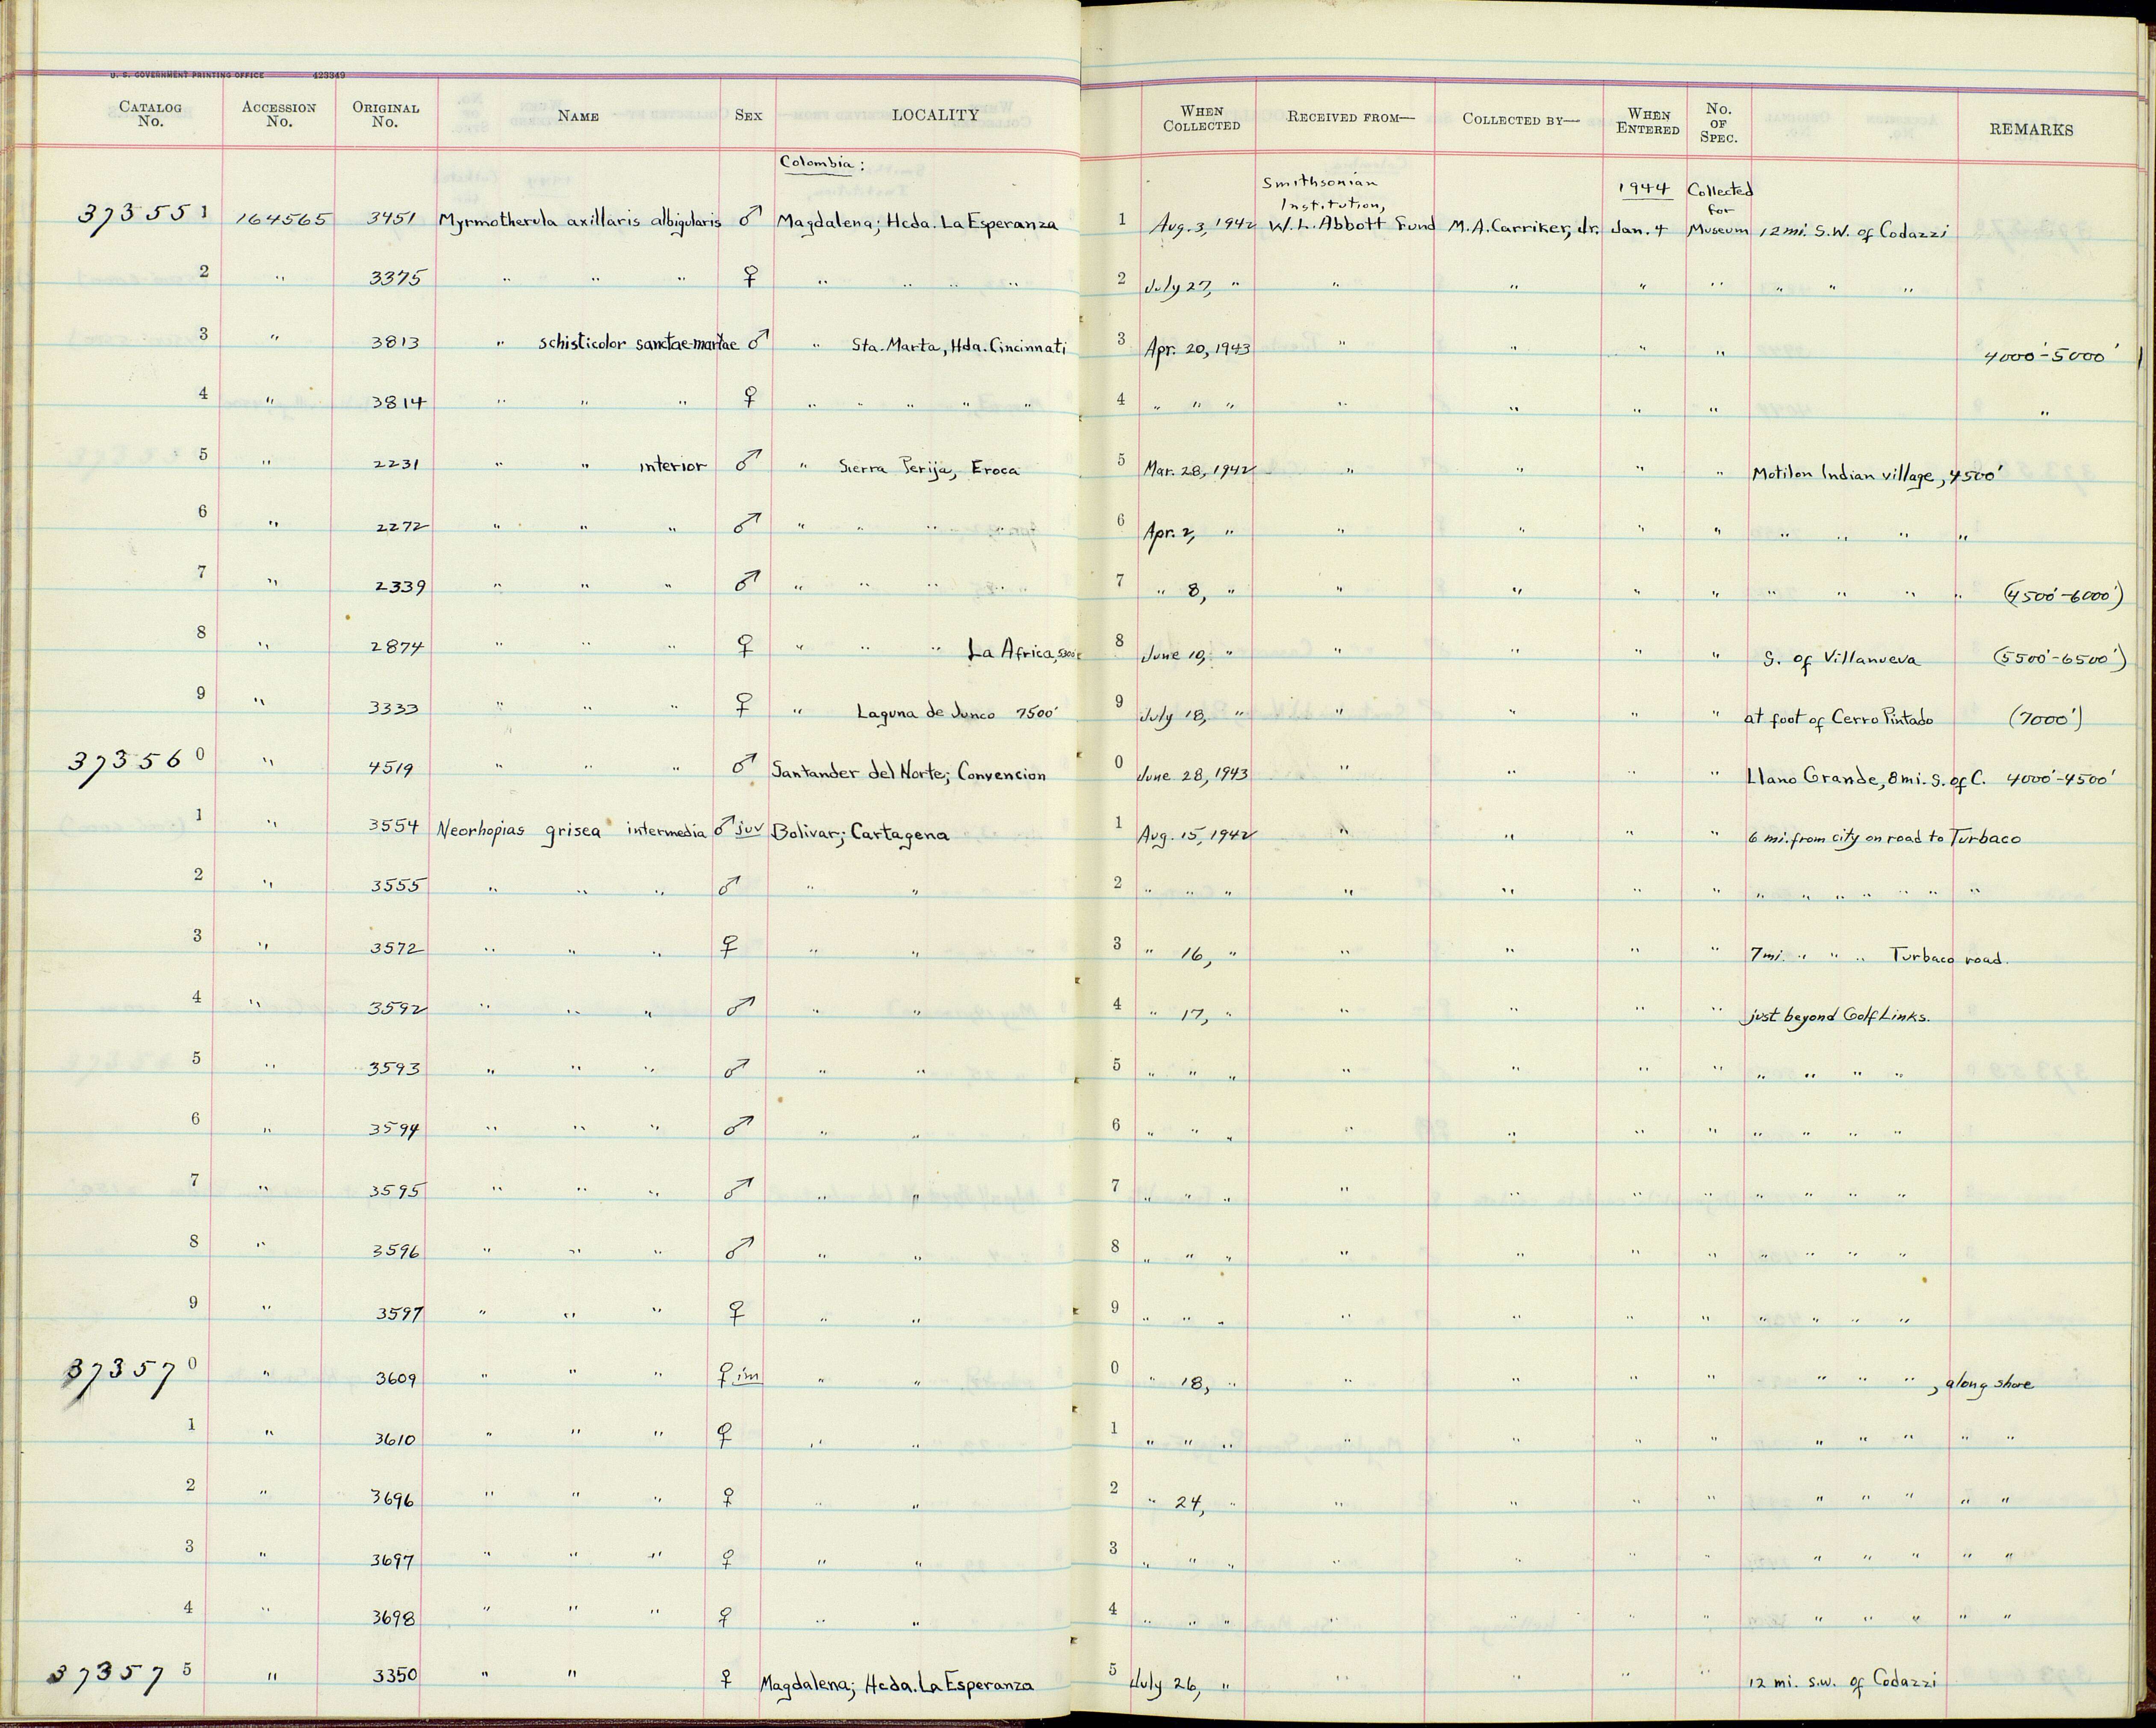 U. S. GOVERNMENT PRINTING OFFICE 423349
CATALOG No. ACCESSION No. ORIGINAL No. NAME SEX LOCALITY WHEN COLLECTED RECEIVED FROM— COLLECTED BY— WHEN ENTERED No. OF SPEC. REMARKS
Colombia:
Smithsonian Institution, 1944 Collected for
373551 164565 3451 Myrmotherula axillaris albigularis ♂ Magdalena; Hcda. La Esperanza 1 Aug. 3, 1942 W. L. Abbott Fund M. A. Carriker, Jr. Jan. 4 Museum 12 mi. S.W. of Codazzi
2 " 3375 " " " ♀ " " " " 2 July 27, " " " " " " " "
3 " 3813 " schisticolor sanctae-martae ♂ " Sta. Marta, Hda. Cincinnati 3 Apr. 20, 1943 " " " " 4000'-5000'
4 " 3814 " " " ♀ " " " " " 4 " " " " " " " "
5 " 2231 " " interior ♂ " Sierra Perija, Eroca 5 Mar. 28, 1942 " " " " Motilon Indian village, 4500'
6 " 2272 " " " ♂ " " " " 6 Apr. 2, " " " " " " " " "
7 " 2339 " " " ♂ " " " " 7 " 8, " " " " " " " " " (4500'-6000')
8 " 2874 " " " ♀ " " " La Africa, 8 June 10, " " " " " S. of Villanueva (5500'-6500')
9 " 3333 " " " ♀ " Laguna de Junco 7500' 9 July 18, " " " " " at foot of Cerro Pintado (7000')
373560 " 4519 " " " ♂ Santander del Norte; Convencion 0 June 28, 1943 " " " " Llano Grande, 8 mi. S. of C. 4000'-4500'
1 " 3554 Neorhopias grisea intermedia ♂ juv Bolivar; Cartagena 1 Aug. 15, 1942 " " " " 6 mi. from city on road to Turbaco
2 " 3555 " " " ♂ " " 2 " " " " " " " " " " " " " "
3 " 3572 " " " ♀ " " 3 " 16, " " " " " 7 mi. " " " Turbaco road.
4 " 3592 " " " ♂ " " 4 " 17, " " " " " just beyond Golf Links.
5 " 3593 " " " ♂ " " 5 " " " " " " " " " " "
6 " 3594 " " " ♂ " " 6 " " " " " " " " " " "
7 " 3595 " " " ♂ " " 7 " " " " " " " " " " "
8 " 3596 " " " ♂ " " 8 " " " " " " " " " " "
9 " 3597 " " " ♀ " " 9 " " " " " " " " " " "
373570 " 3609 " " " ♀ im " " 0 " 18, " " " " " " " " , along shore
1 " 3610 " " " ♀ " " 1 " " " " " " " " " " " "
2 " 3696 " " " ♀ " " 2 " 24, " " " " " " " " " "
3 " 3697 " " " ♀ " " 3 " " " " " " " " " " " "
4 " 3698 " " " ♀ " " 4 " " " " " " " " " " " "
373575 " 3350 " " ♀ Magdalena; Hcda. La Esperanza 5 July 26, " " " " " 12 mi. s.w. of Codazzi